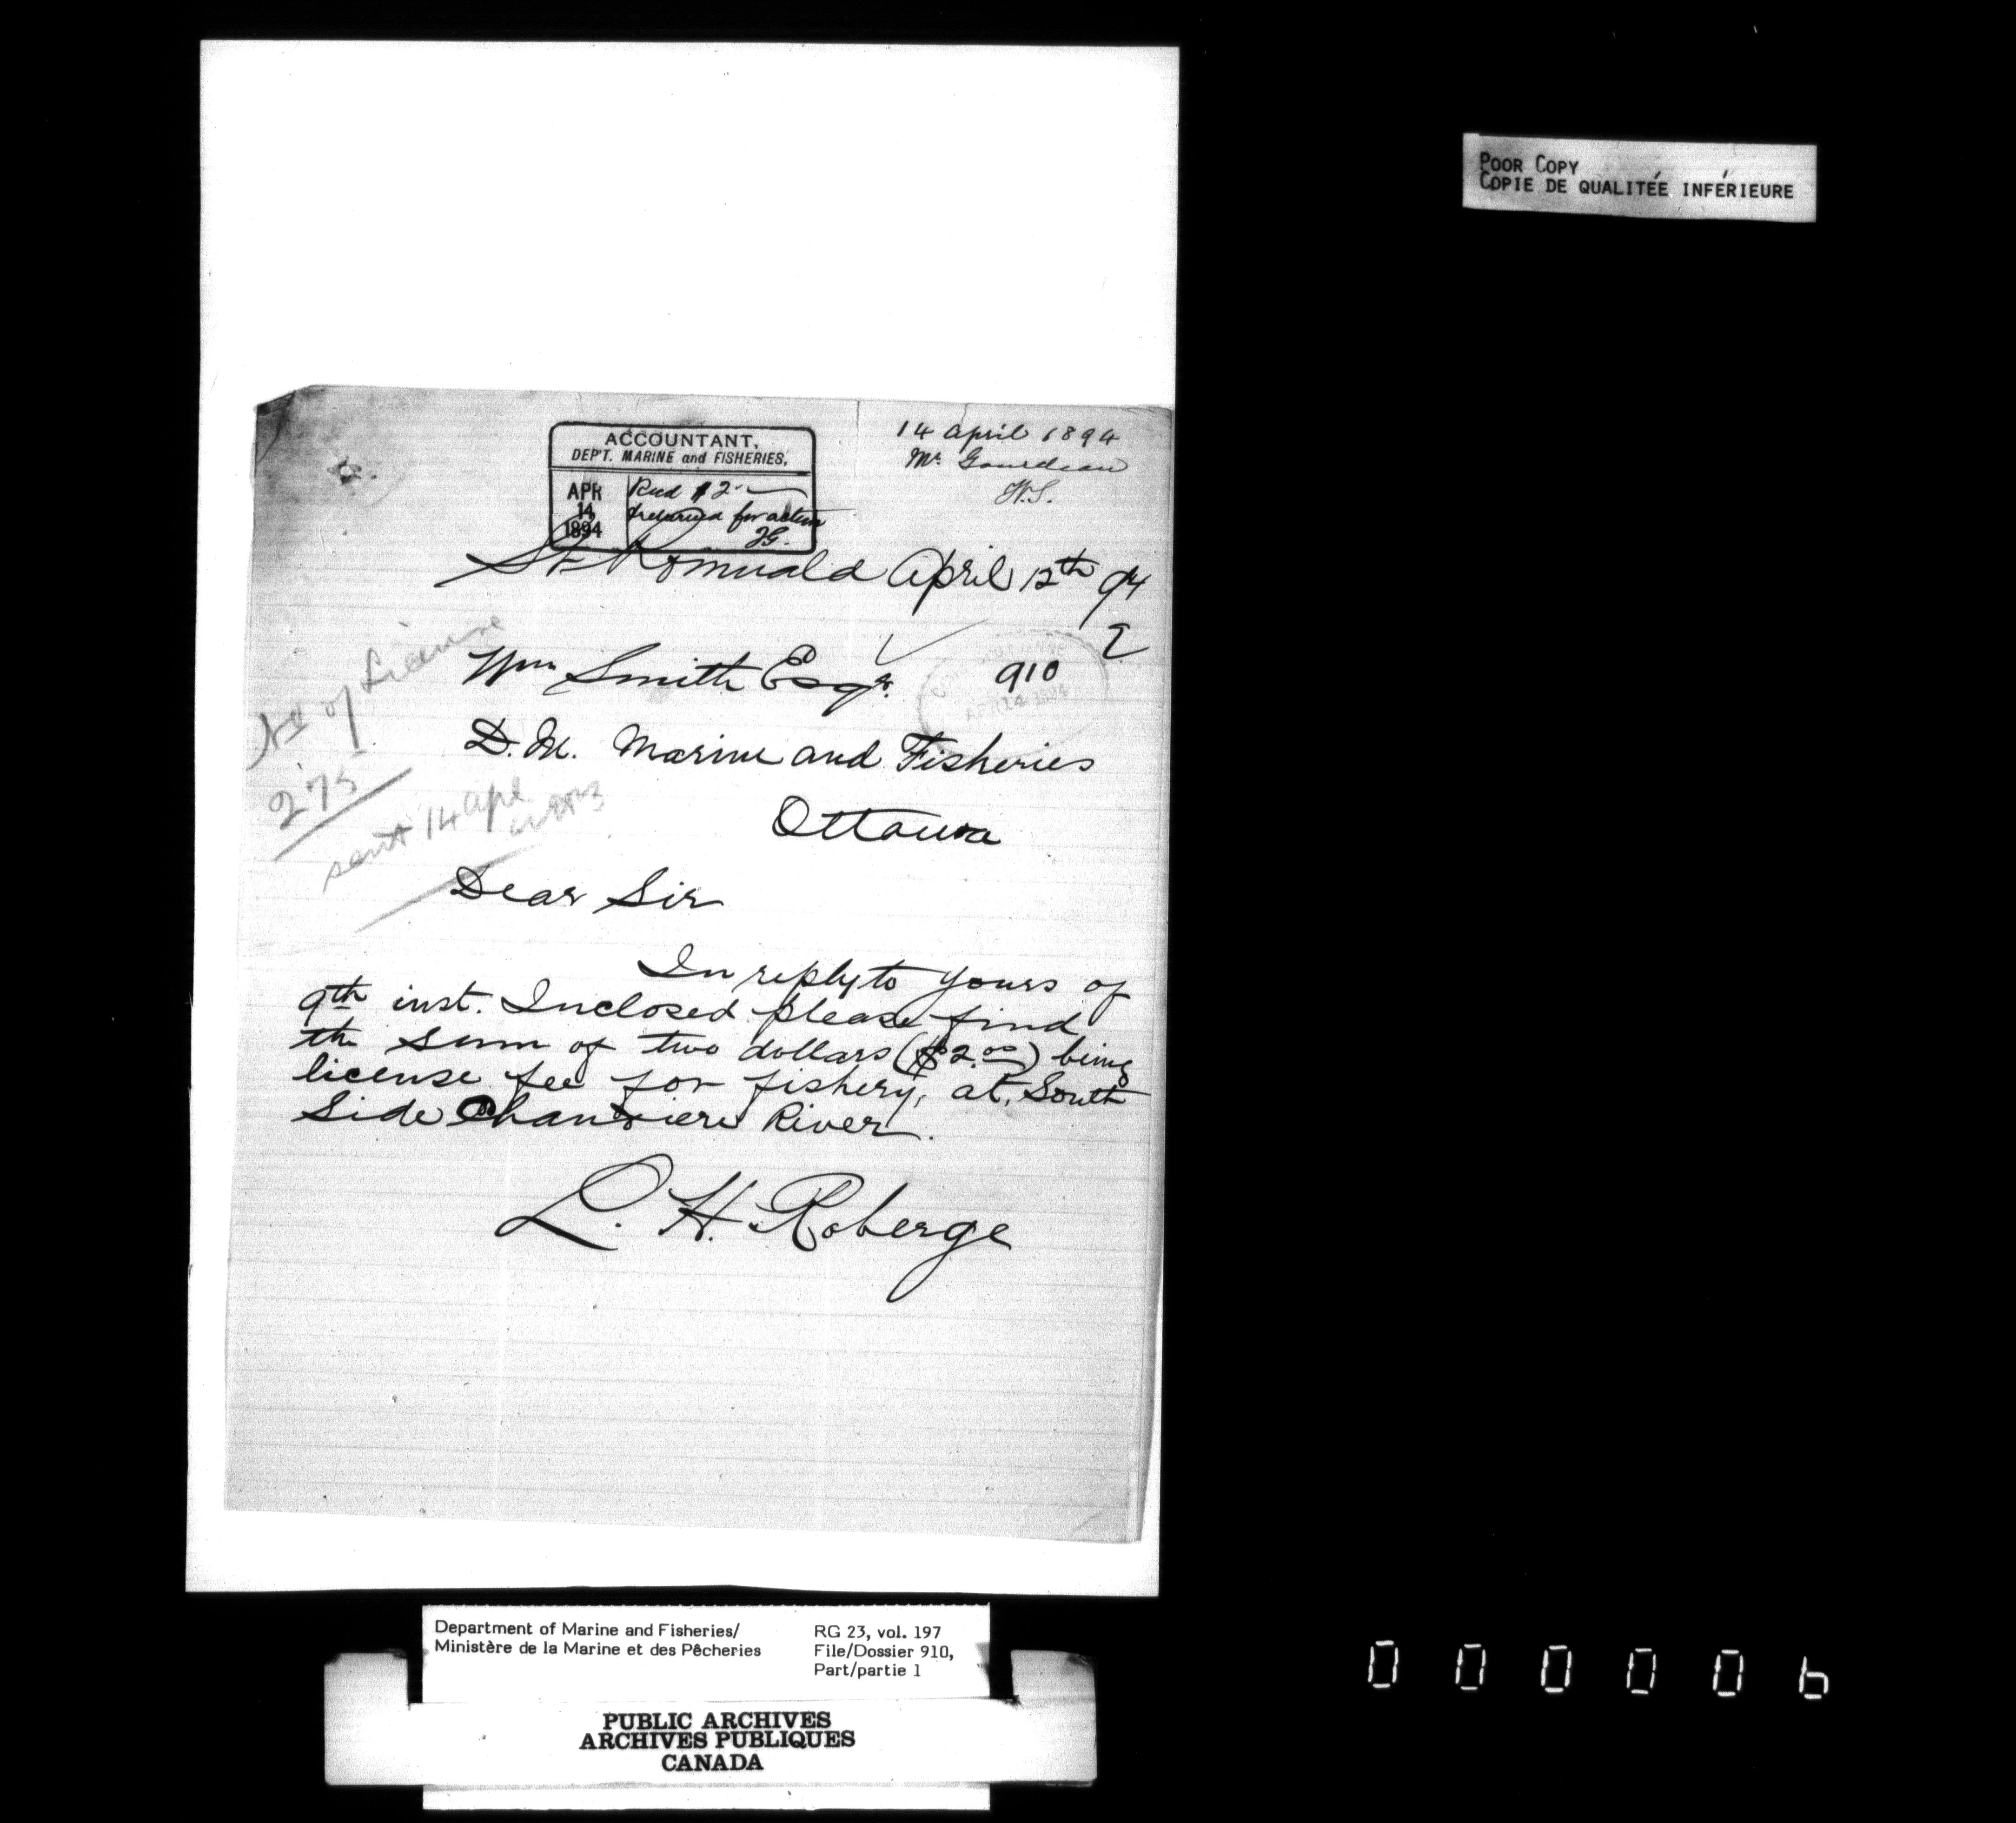 POOR COPY
COPIE DE QUALITÉE INFÉRIEURE
14 April 1894
Mr. Gourdeau
W.S.
ACCOUNTANT,
DEP'T. MARINE and FISHERIES,
APR 14 1894
Recd $2
returned for action
JG.
St Romuald April 12th 94
No of License
275
sent 14 Apl
Wm Smith Esqr.
910
APR 14 1894
D.M. Marine and Fisheries
Ottawa
Dear Sir
In reply to yours of
9th inst. Inclosed please find
the sum of two dollars ($2.00) being
license fee for fishery, at, South
Side Chaudiere River.
L. H. Roberge
Department of Marine and Fisheries/
Ministère de la Marine et des Pêcheries
RG 23, vol. 197
File/Dossier 910,
Part/partie 1
PUBLIC ARCHIVES
ARCHIVES PUBLIQUES
CANADA
000006